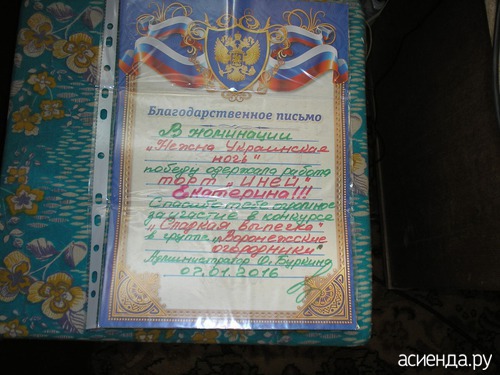 Благодарственное письмо
В номинации
„Нежна Украинская
ночь"
победу одержала работа
торт „Иней"
Екатерина!!!
Спасибо тебе огромное
за участие в конкурсе
„Сладкая выпечка"
в группе „Воронежские
огородники"
Администратор О. Буркина
02.01.2016
асиенда.ру